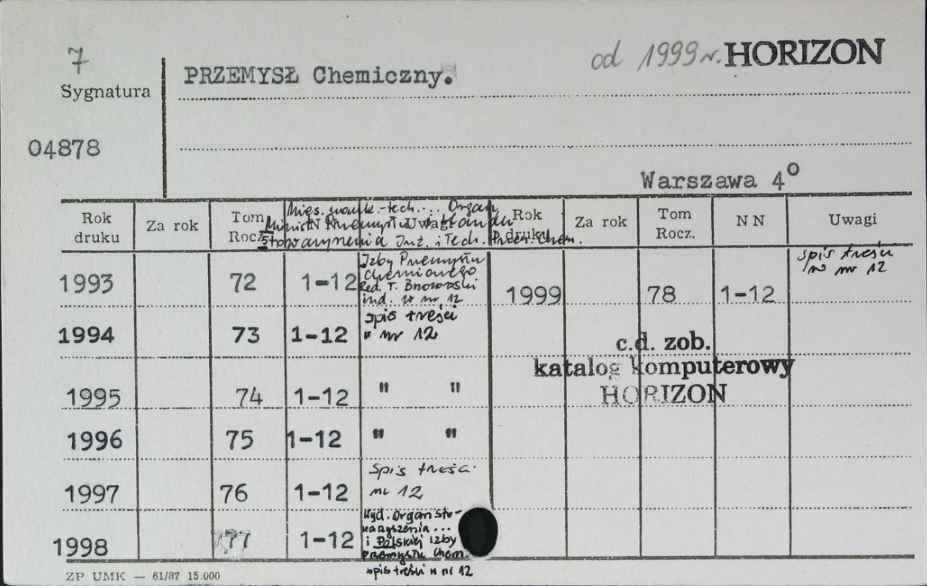 7 od 1999 r. HORIZON
Sygnatura PRZEMYSŁ Chemiczny.
04878
Warszawa 4°
Rok druku Za rok Tom Rocz. N N Uwagi Rok druku Za rok Tom Rocz. N N Uwagi
Mies. nauk.-tech.... Organ
Minist. Przemysłu
Stowarzyszenia Inż. i Tech. Przem. Chem.
Izby Przemysłu
Chemicznego
Red. T.
ind. w nr 12
1993 72 1-12
1999 78 1-12 spis treści
w nr 12
1994 73 1-12 spis treści
w nr 12
c.d. zob.
katalog komputerowy
HORIZON
1995 74 1-12 " "
1996 75 1-12 " "
1997 76 1-12 Spis treści
nr 12
1998 77 1-12 Wyd. Organ Sto-
warzyszenia...
i Polskiej Izby
Przemysłu Chem.
spis treści w nr 12
ZP UMK — 61/87 15.000